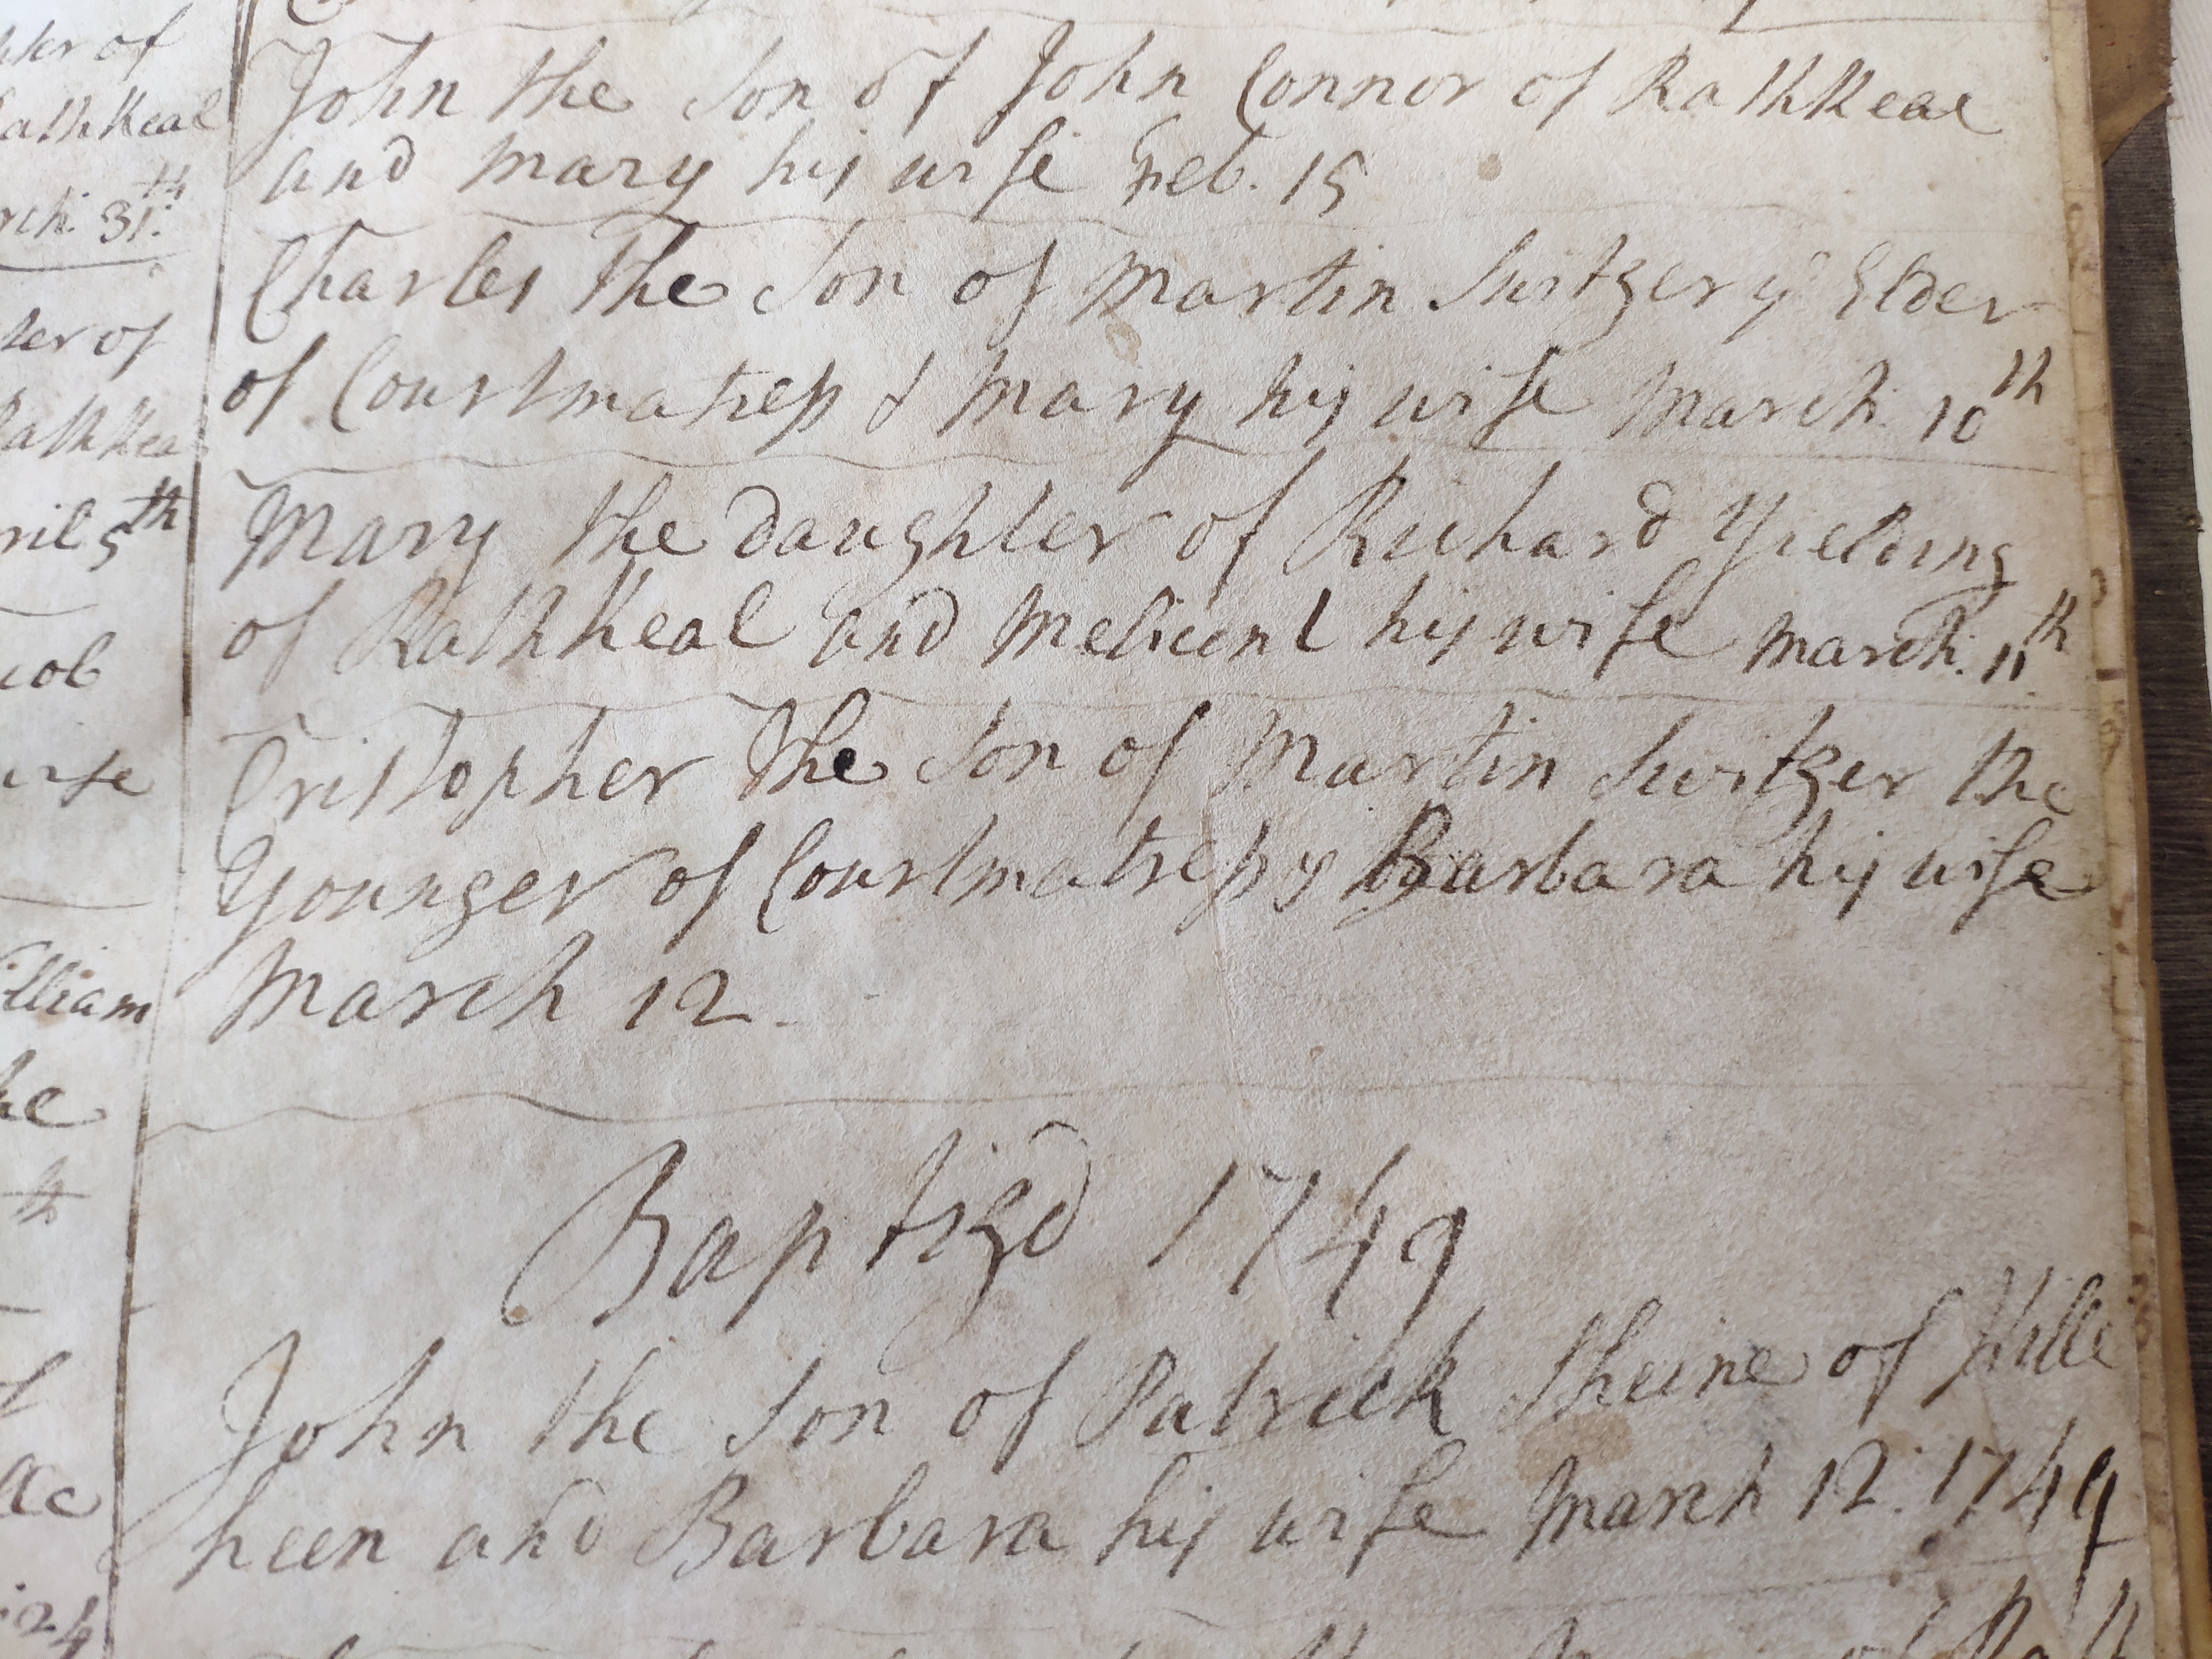 ter of
athkeal
rch. 31th
ter of
athkea
ril 5th
cob
wife
illiam
he
th
ac
24
John the Son of John Connor of Rathkeal
and Mary his wife Feb. 15
Charles the Son of Martin Switzer ye Elder
of Courtmatress & Mary his wife March 10th
Mary the Daughter of Richard Yielding
of Rathkeal and Melicent his wife March. 11th
Cristopher the Son of Martin Switzer the
Younger of Courtmatress & Barbara his wife
March 12
Baptizd 1749
John the Son of Patrick Sheine of Kille
heen and Barbara his wife March 12. 1749